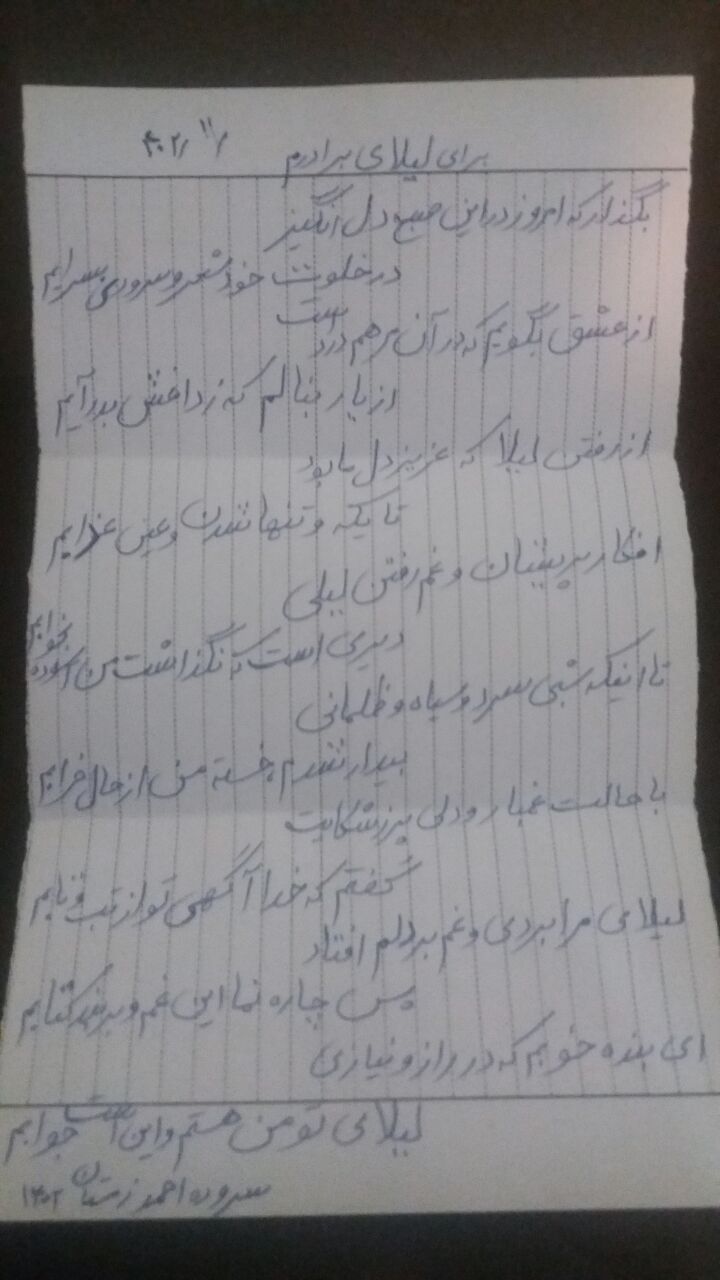 برای لیلای برادرم ۴۰۲/۱۱/
بگذار که امروز در این صبح دل انگیز
در خلوت خود شعر و سرودی بسرایم
از عشق بگویم که در آن مرهم درد است
از یار بنالم که ز داغش بدر آیم
از رفتن لیلا که عزیز دل ما بود
تا یکه و تنها شدن و عین عذابم
افکار پریشان و غم رفتن لیلی
دیری است که نگذاشت من آسوده بخوابم
تا اینکه شبی سرد و سیاه و ظلمانی
بیدار شدم خسته من از حال خرابم
با حالت غمبار و دلی پر ز شکایت
گفتم که خدا آگهی تو از تب و تابم
لیلای مرا بردی و غم بر دلم افتاد
پس چاره نما این غم و
ای بنده خوبم که در راز و نیازی
لیلای تو من هستم و این است جوابم
سروده احمد زمستان ۱۴۰۲